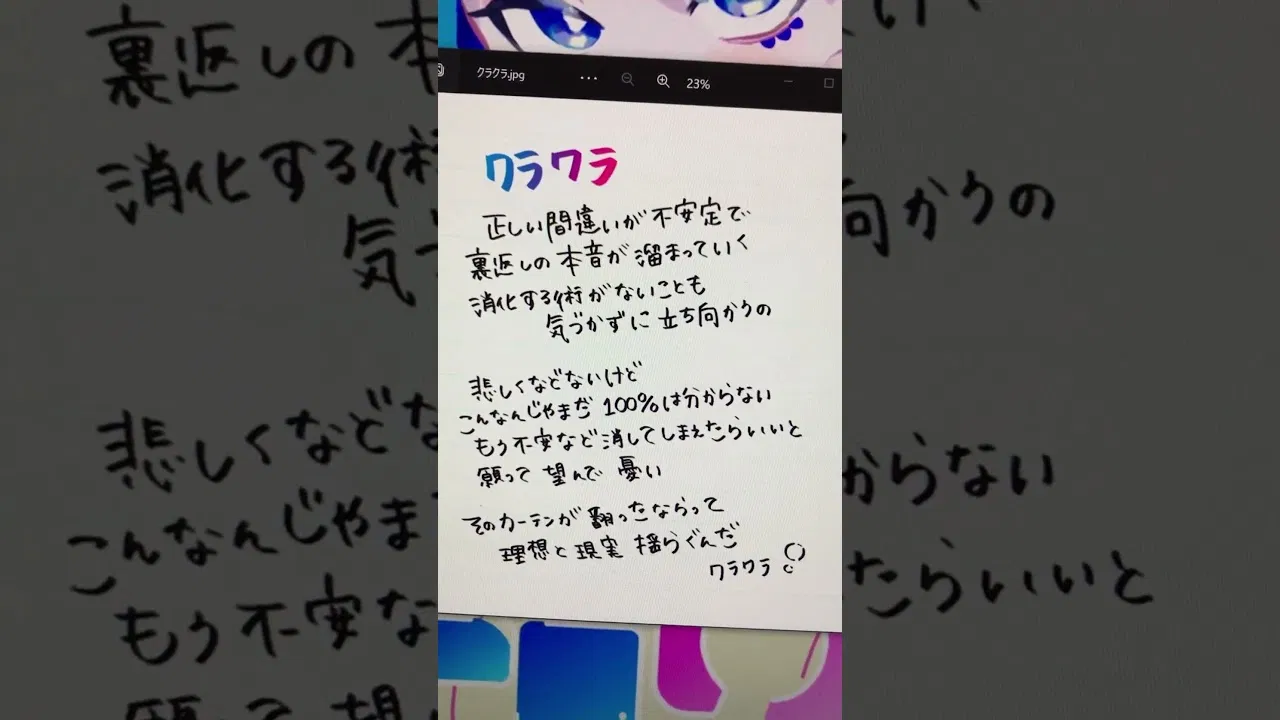 クラクラ.jpg
23%
クラクラ
正しい間違いが不安定で
裏返しの本音が溜まっていく
消化する術がないことも
気づかずに立ち向かうの
悲しくなどないけど
こんなんじゃまだ100%は分からない
もう不安など消してしまえたらいいと
願って望んで憂い
そのカーテンが翻ったならって
理想と現実揺らぐんだ
クラクラ